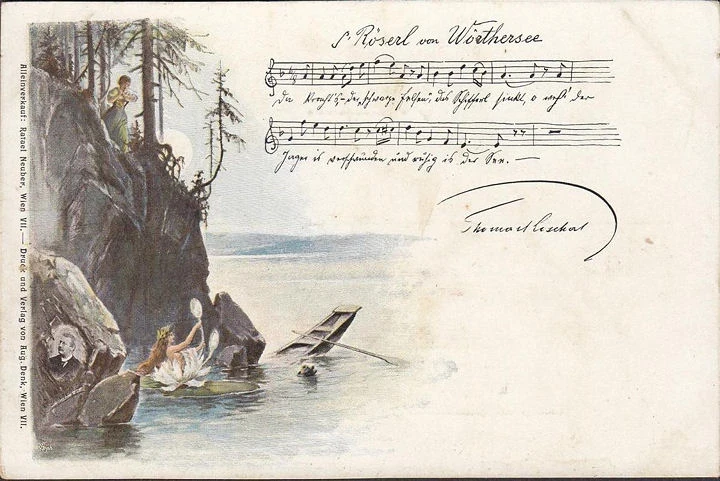 's Röserl von Wörthersee
Da kracht's an der schwarze Felsen, das Schifferl sinkt, o weh! der
Jager is verschwunden und ruhig is der See. —
Thomas Koschat
Alleinverkauf: Rafael Neuber, Wien VII. — Druck und Verlag von Aug. Denk, Wien VII.